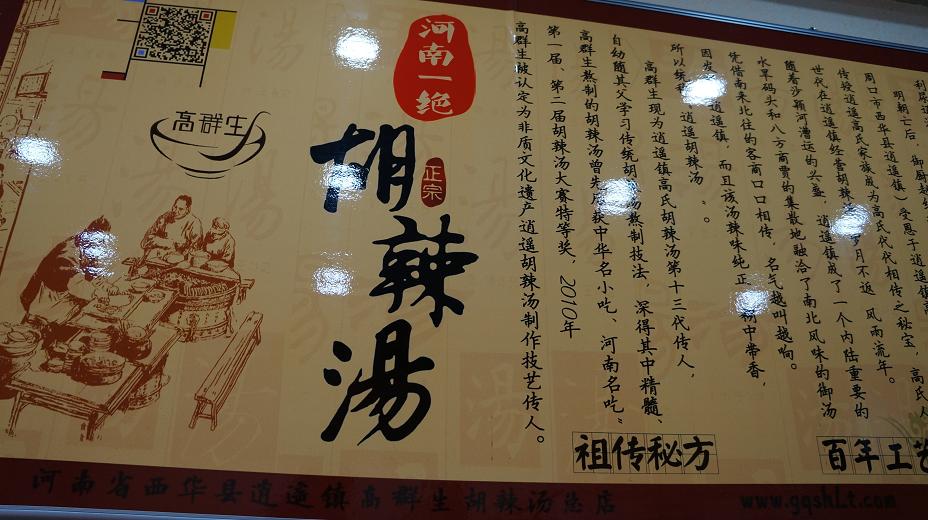 高群生
河南一绝
正宗
胡辣汤
明朝亡后，御厨赵
周口市西华县逍遥镇）受恩于逍遥镇高
传授逍遥高氏家族成为高氏代代相传之秘宝，高氏人
世代在逍遥镇经营胡辣汤
岁月不返，风雨流年。
随着沙颍河漕运的兴盛，逍遥镇成了一个内陆重要的
水旱码头和八方商贾的集散地融洽了南北风味的御汤
凭借南来北往的客商口口相传，名气越叫越响。
因发
逍遥镇，而且该汤辣味纯正
中带香，
所以统称
逍遥胡辣汤”。
高群生现为逍遥镇高氏胡辣汤第十三代传人，
自幼随其父学习传统胡
汤熬制技法，深得其中精髓、
高群生熬制的胡辣汤曾先后获中华名小吃、河南名吃“
第一届、第二届胡辣汤大赛特等奖，2010年
高群生被认定为非质文化遗产逍遥胡辣汤制作技艺传人。
祖传秘方
百年工艺
河南省西华县逍遥镇高群生胡辣汤总店
www.gqshlt.com